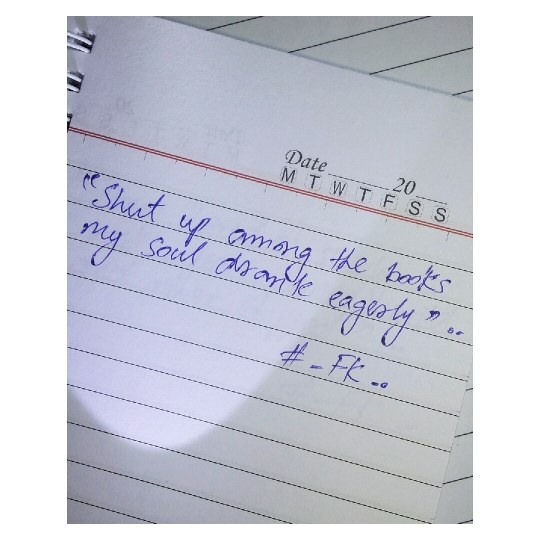 Date ______ 20___
M T W T F S S
"Shut up among the books
my soul drank eagerly" ..
# - FK ..